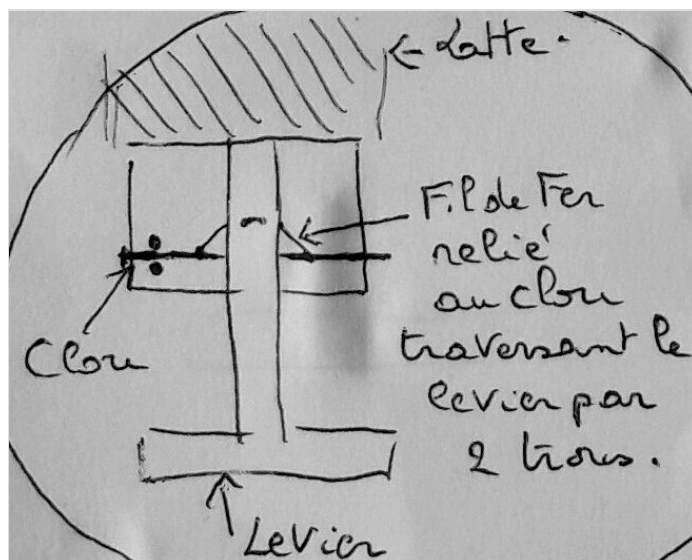 ← Latte.
Fil de Fer
relié
au clou
traversant le
levier par
2 trous.
Clou
Levier